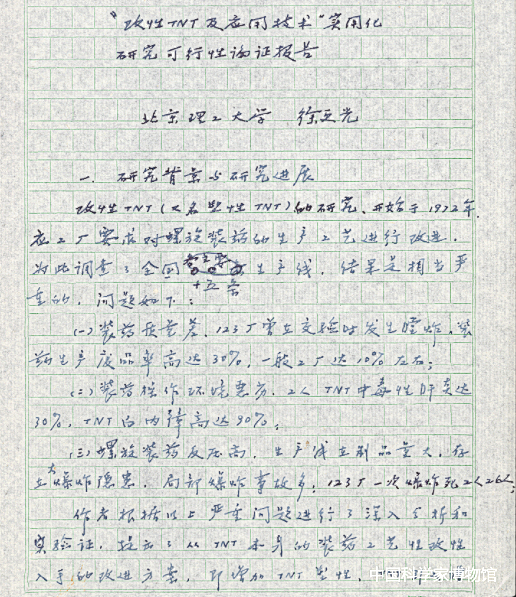 “改性TNT及应用技术”实用化
研究可行性论证报告
北京理工大学 徐更光
一. 研究背景与研究进展
改性TNT(又名塑性TNT)的研究, 开始于1972年,
应工厂要求对螺旋装药的生产工艺进行改进.
为此调查了全国主要十五条生产线, 结果是相当严
重的, 问题如下:
(一) 装药质量差, 123厂曾在交验时发生膛炸, 装
药生产废品率高达30%, 一般工厂达10%左右;
(二) 装药操作环境恶劣, 工人TNT中毒性肝炎达
30%, TNT白内障高达90%;
(三) 螺旋装药反压高, 生产成立制品量大, 存
在大爆炸隐患, 局部爆炸事故多, 123厂一次爆炸死工人26人;
作者根据以上严重问题进行了深入分析和
实验证, 提出了从TNT本身的装药工艺性改性
入手的改进方案, 即增加TNT塑性,
中国科学家博物馆